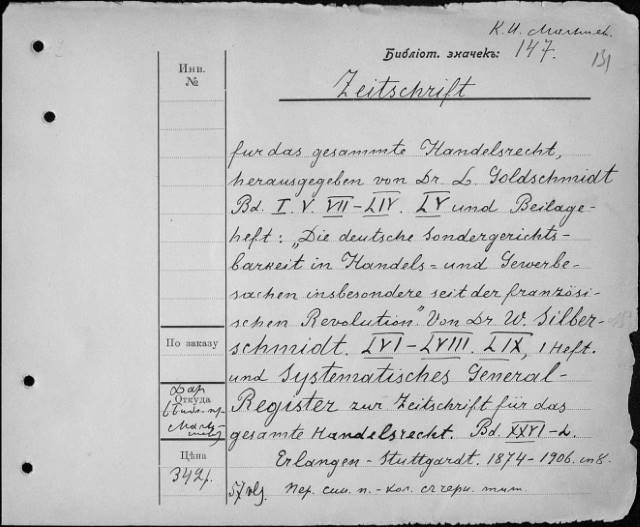 К. И. Малышев.
Библіот. значекъ: 147.
131
Инв.
№
Zeitschrift
fur das gesammte Handelsrecht,
herausgegeben von Dr. L. Goldschmidt
Bd. I. V. VII-LIV. LV und Beilage-
heft: „Die deutsche Sondergerichts-
barkeit in Handels- und Gewerbe-
sachen insbesondere seit der französi-
schen Revolution". Von Dr. W. Silber-
schmidt. LVI-LVIII. LIX, 1 Heft.
und Systematisches General-
Register zur Zeitschrift für das
gesamte Handelsrecht. Bd. XXVI-L.
Erlangen-Stuttgardt. 1874-1906. in 8.
57 vlj. пер. син. п.-кол. с черн. тит.
По заказу
Дар
Откуда
Цѣна
342 р.